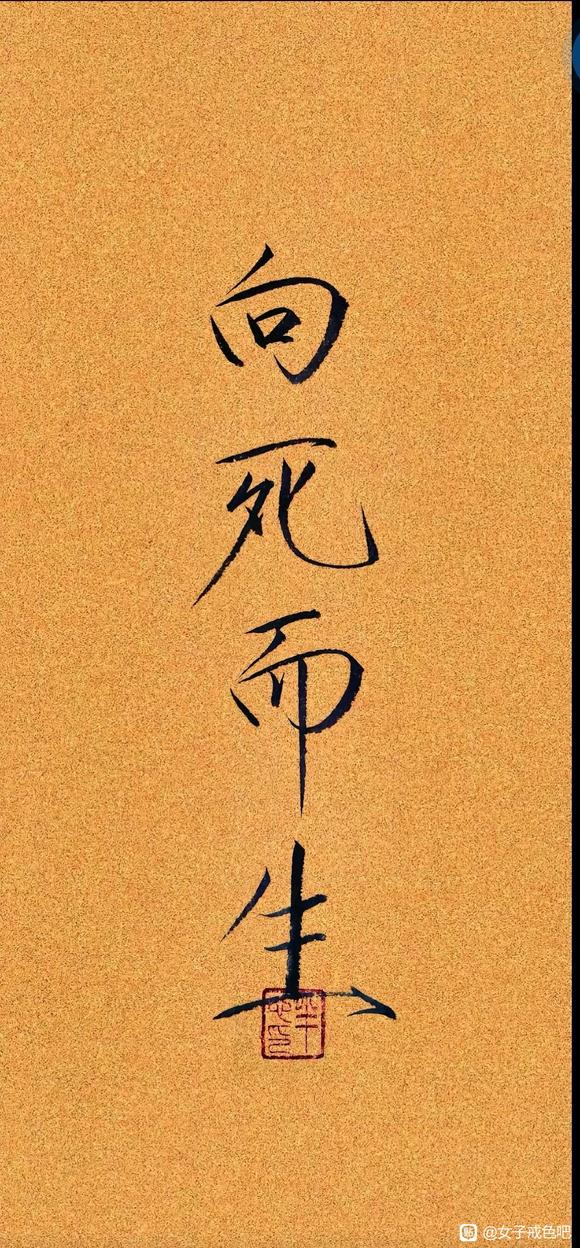 向死而生
贴 @女子戒色吧